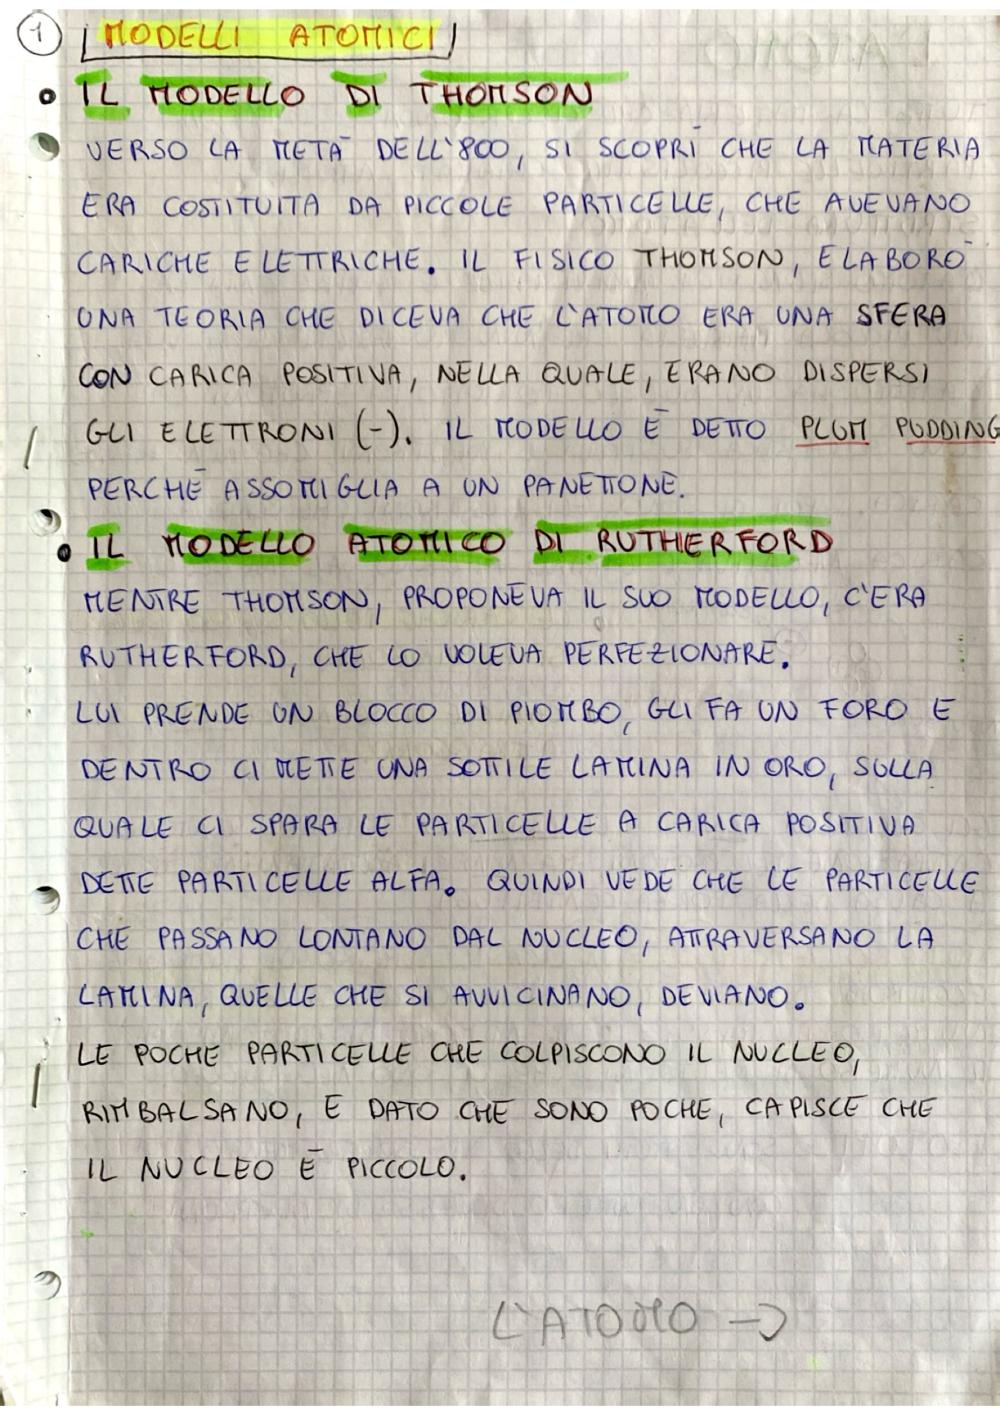 1 MODELLI ATOMICI
• IL MODELLO DI THOMSON
VERSO LA METÀ DELL'800, SI SCOPRÌ CHE LA MATERIA
ERA COSTITUITA DA PICCOLE PARTICELLE, CHE AVEVANO
CARICHE ELETTRICHE. IL FISICO THOMSON, ELABORÒ
UNA TEORIA CHE DICEVA CHE L'ATOMO ERA UNA SFERA
CON CARICA POSITIVA, NELLA QUALE, ERANO DISPERSI
GLI ELETTRONI (-). IL MODELLO È DETTO PLUM PUDDING
PERCHÉ ASSOMIGLIA A UN PANETTONE.
• IL MODELLO ATOMICO DI RUTHERFORD
MENTRE THOMSON, PROPONEVA IL SUO MODELLO, C'ERA
RUTHERFORD, CHE LO VOLEVA PERFEZIONARE.
LUI PRENDE UN BLOCCO DI PIOMBO, GLI FA UN FORO E
DENTRO CI METTE UNA SOTTILE LAMINA IN ORO, SULLA
QUALE CI SPARA LE PARTICELLE A CARICA POSITIVA
DETTE PARTICELLE ALFA. QUINDI VEDE CHE LE PARTICELLE
CHE PASSANO LONTANO DAL NUCLEO, ATTRAVERSANO LA
LAMINA, QUELLE CHE SI AVVICINANO, DEVIANO.
LE POCHE PARTICELLE CHE COLPISCONO IL NUCLEO,
RIMBALSANO, E DATO CHE SONO POCHE, CAPISCE CHE
IL NUCLEO È PICCOLO.
L'ATOMO →